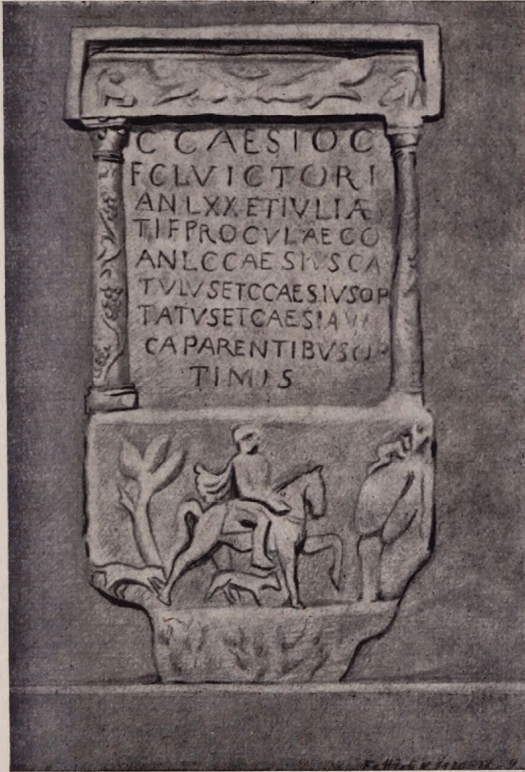 C CAESIO C
F CL VICTORI
AN LXX ET IVLIÆ
TI F PROCVLAE CO
AN L C CAESIVS CA
TVLVS ET C CAESIVS OP
TATVS ET CAESIA
CA PARENTIBVS
TIMIS